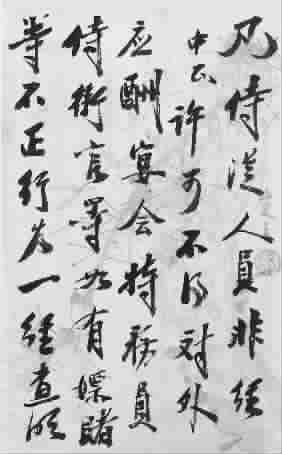 凡侍從人員非經
中正許可不得對外
应酬宴会特務員
侍衛官等如有嫖賭
等不正行为一經查明